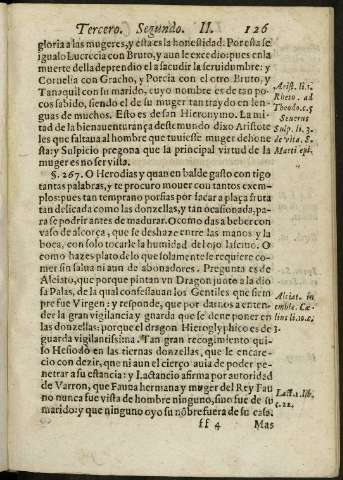 Tercero. Segundo. II. 126
gloria a las mugeres, y esta es la honestidad. Por esta se
igualo Lucrecia con Bruto, y aun le excedio: pues en la
muerte della deprendio el a sacudir la seruidumbre: y
Cornelia con Gracho, y Porcia con el otro Bruto, y
Tanaquil con su marido, cuyo nombre es de tan po-
cos sabido, siendo el de su muger tan traydo en len-
guas de muchos. Esto es de san Hieronymo. La mi-
tad de la bienauenturança deste mundo dixo Aristote
les que faltaua al hombre que tuuiesse muger deshone
sta: y Sulpicio pregona que la principal virtud de la
muger es no ser vista.
Arist. li. 1.
Rheto. ad
Theodo. c. 5
Seuerus
Sulp. li. 3.
de vita. S.
Marti epi.
§. 267. O Herodias y quan en balde gasto con tigo
tantas palabras, y te procuro mouer con tantos exem-
plos: pues tan temprano porfias por sacar a plaça fruta
tan delicada como las donzellas, y tan ocasionada, pa-
ra se podrir antes de madurar. O como das a beber con
vaso de alcorça, que se deshaze entre las manos y la
boca, con solo tocarle la humidad del ojo lasciuo. O
como hazes plato de lo que solamente se requiere co-
mer sin salua ni aun de abonadores. Pregunta es de
Alciato, que porque pintan vn Dragon junto a la dio
sa Palas, de la qual confessauan los Gentiles que siem
pre fue Virgen: y responde, que por darnos a enten-
der la gran vigilancia y guarda que se deue poner en
las donzellas: porque el dragon Hieroglyphico es de
guarda vigilantissima. Tan gran recogimiento qui-
so Hesiodo en las tiernas donzellas, que le encare-
cio con dezir, que ni aun el cierço auia de poder pe-
netrar a su estancia: y Lactancio afirma por autoridad
de Varron, que Fauna hermana y muger del Rey Fau
no nunca fue vista de hombre ninguno, sino fue de su
marido: y que ninguno oyo su nõbre fuera de su casa.
Alciat. in
emble. Cæ-
lius li. 10. c.
Lact. 1. lib.
c. 22.
ff 4 Mas